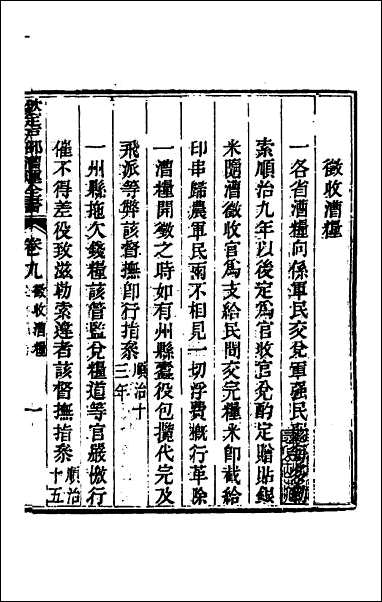 徵收漕糧
一各省漕糧向係軍民交兌軍强民
索順治九年以後定爲官收官兌酌定贈貼銀
米隨漕徵收官爲支給民間交完糧米卽截給
印串歸農軍民兩不相見一切浮費槪行革除
一漕糧開徵之時如有州縣蠹役包攬代完及
飛派等弊該督撫卽行指叅順治十
三年
一州縣拖欠錢糧該管監兌糧道等官嚴檄行
催不得差役致滋勒索違者該督撫指叅順治
十五
欽定戶部漕運全書
卷九
徵收漕糧
一